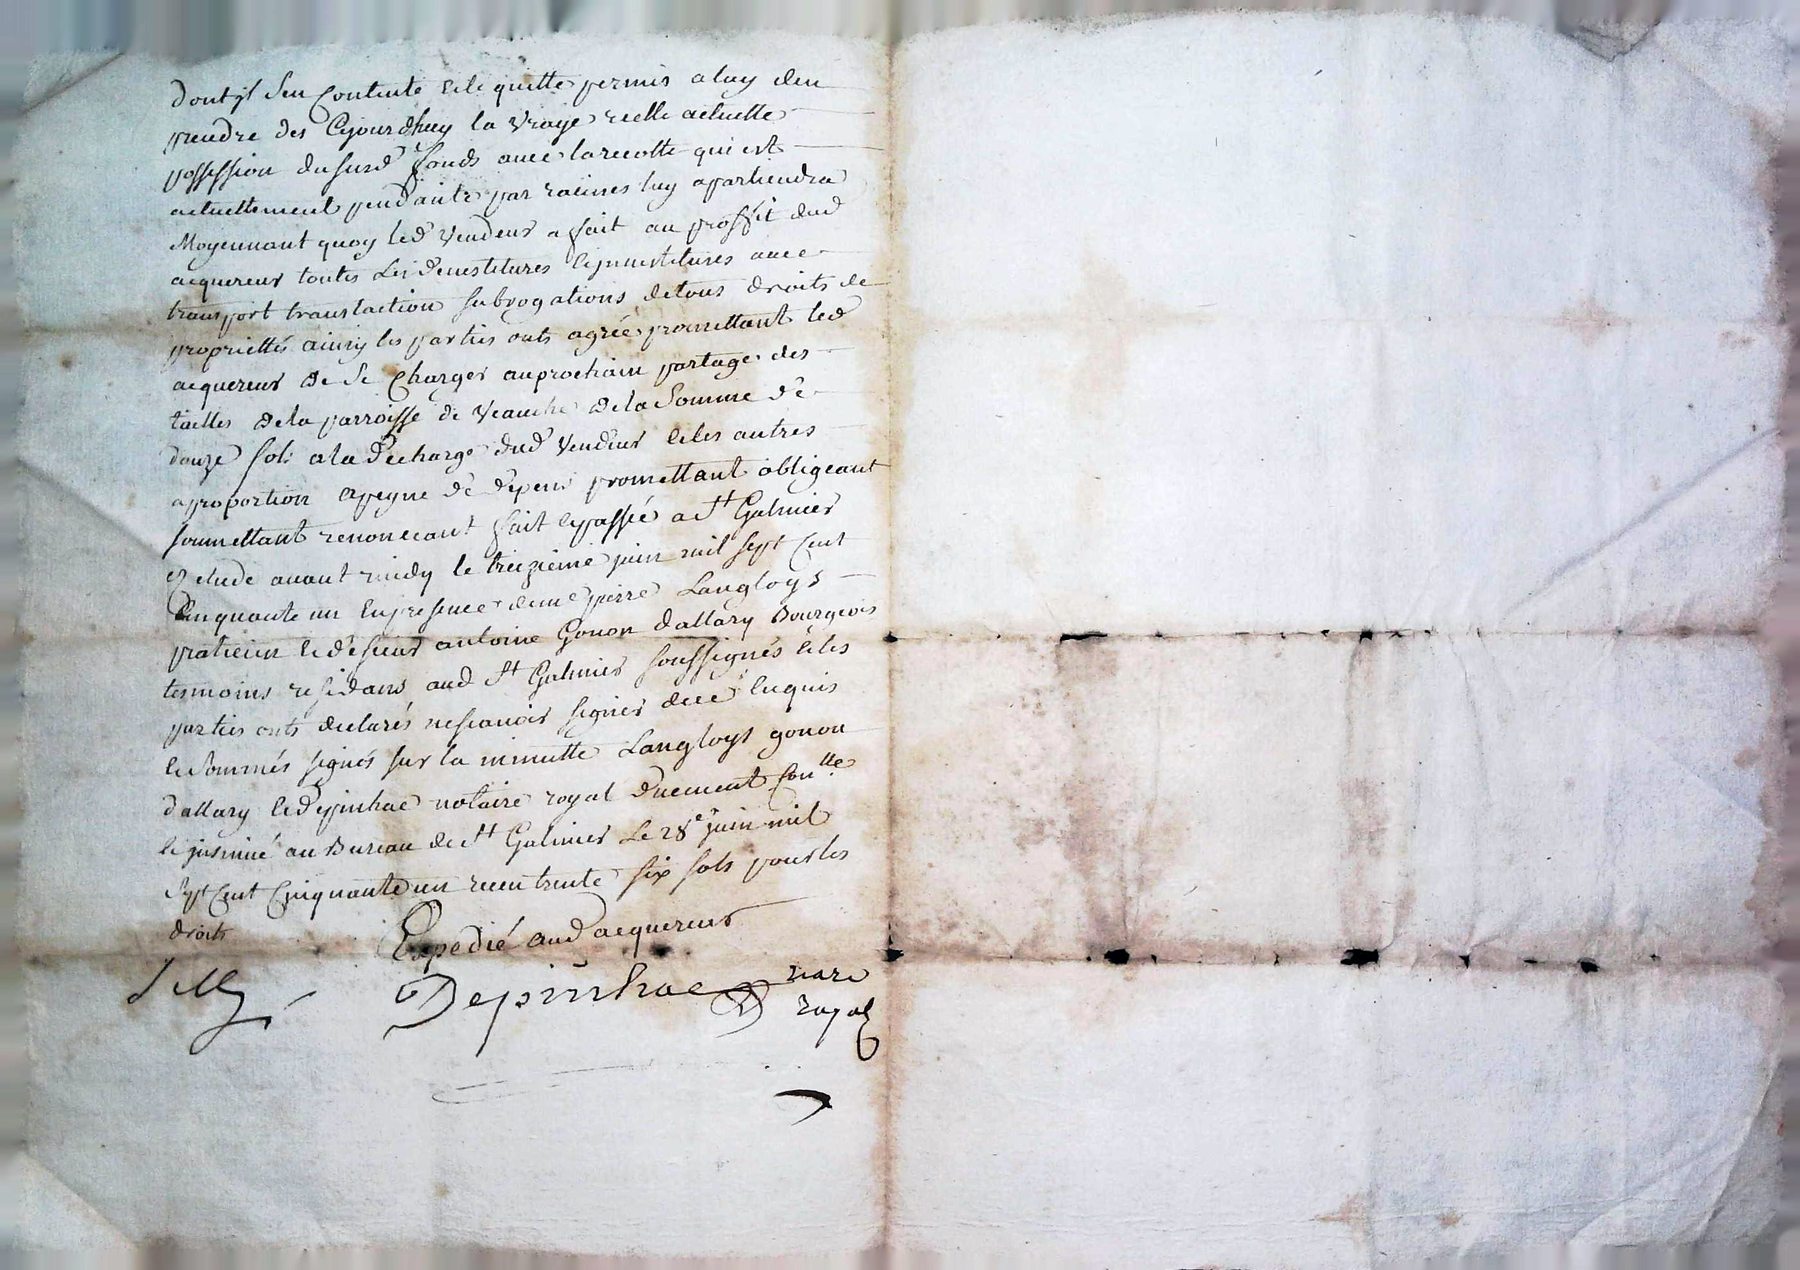 dont jl sen Contente et le quitte permis a luy den
prendre des Cejourdhuy la vraye reelle actuelle
possession dususd fonds avec la recolte qui est
actuellement pendante par racines luy apartiendra
Moyennant quoy led vendeur a fait au proffit dud
acquereur toutes les devestitures et jnvestitures avec
transport translaction subrogations de tous droits de
propriettés ainsy les parties onts agréé promettant led
acquereur de se Charger au prochain partage des
tailles de la parroisse de veauche de la Somme de
douze sols a la decharge dud vendeur et les autres
a proportion a peyne de depens promettant obligeant
soumettant renonceant fait et passé a St Galmier
etude avant midy le treizieme juin mil sept Cent
Cinquante un en presence de me pierre Langloys
praticien et de sieur antoine Gonon dallary Bourgeois
tesmoins residans aud St Galmier soussignés et les
parties onts declarés ne scavoir signer de ce enquis
et Sommés signés sur la minutte Langloys gonon
dallary et Depinhac notaire royal duement Conlle
et jnsinué au Bureau de St Galmier Le 28e juin mil
sept Cent Cinquante un receu trente six sols pour les
droits
Expedié aud acquereur
Depinhac nore
royal